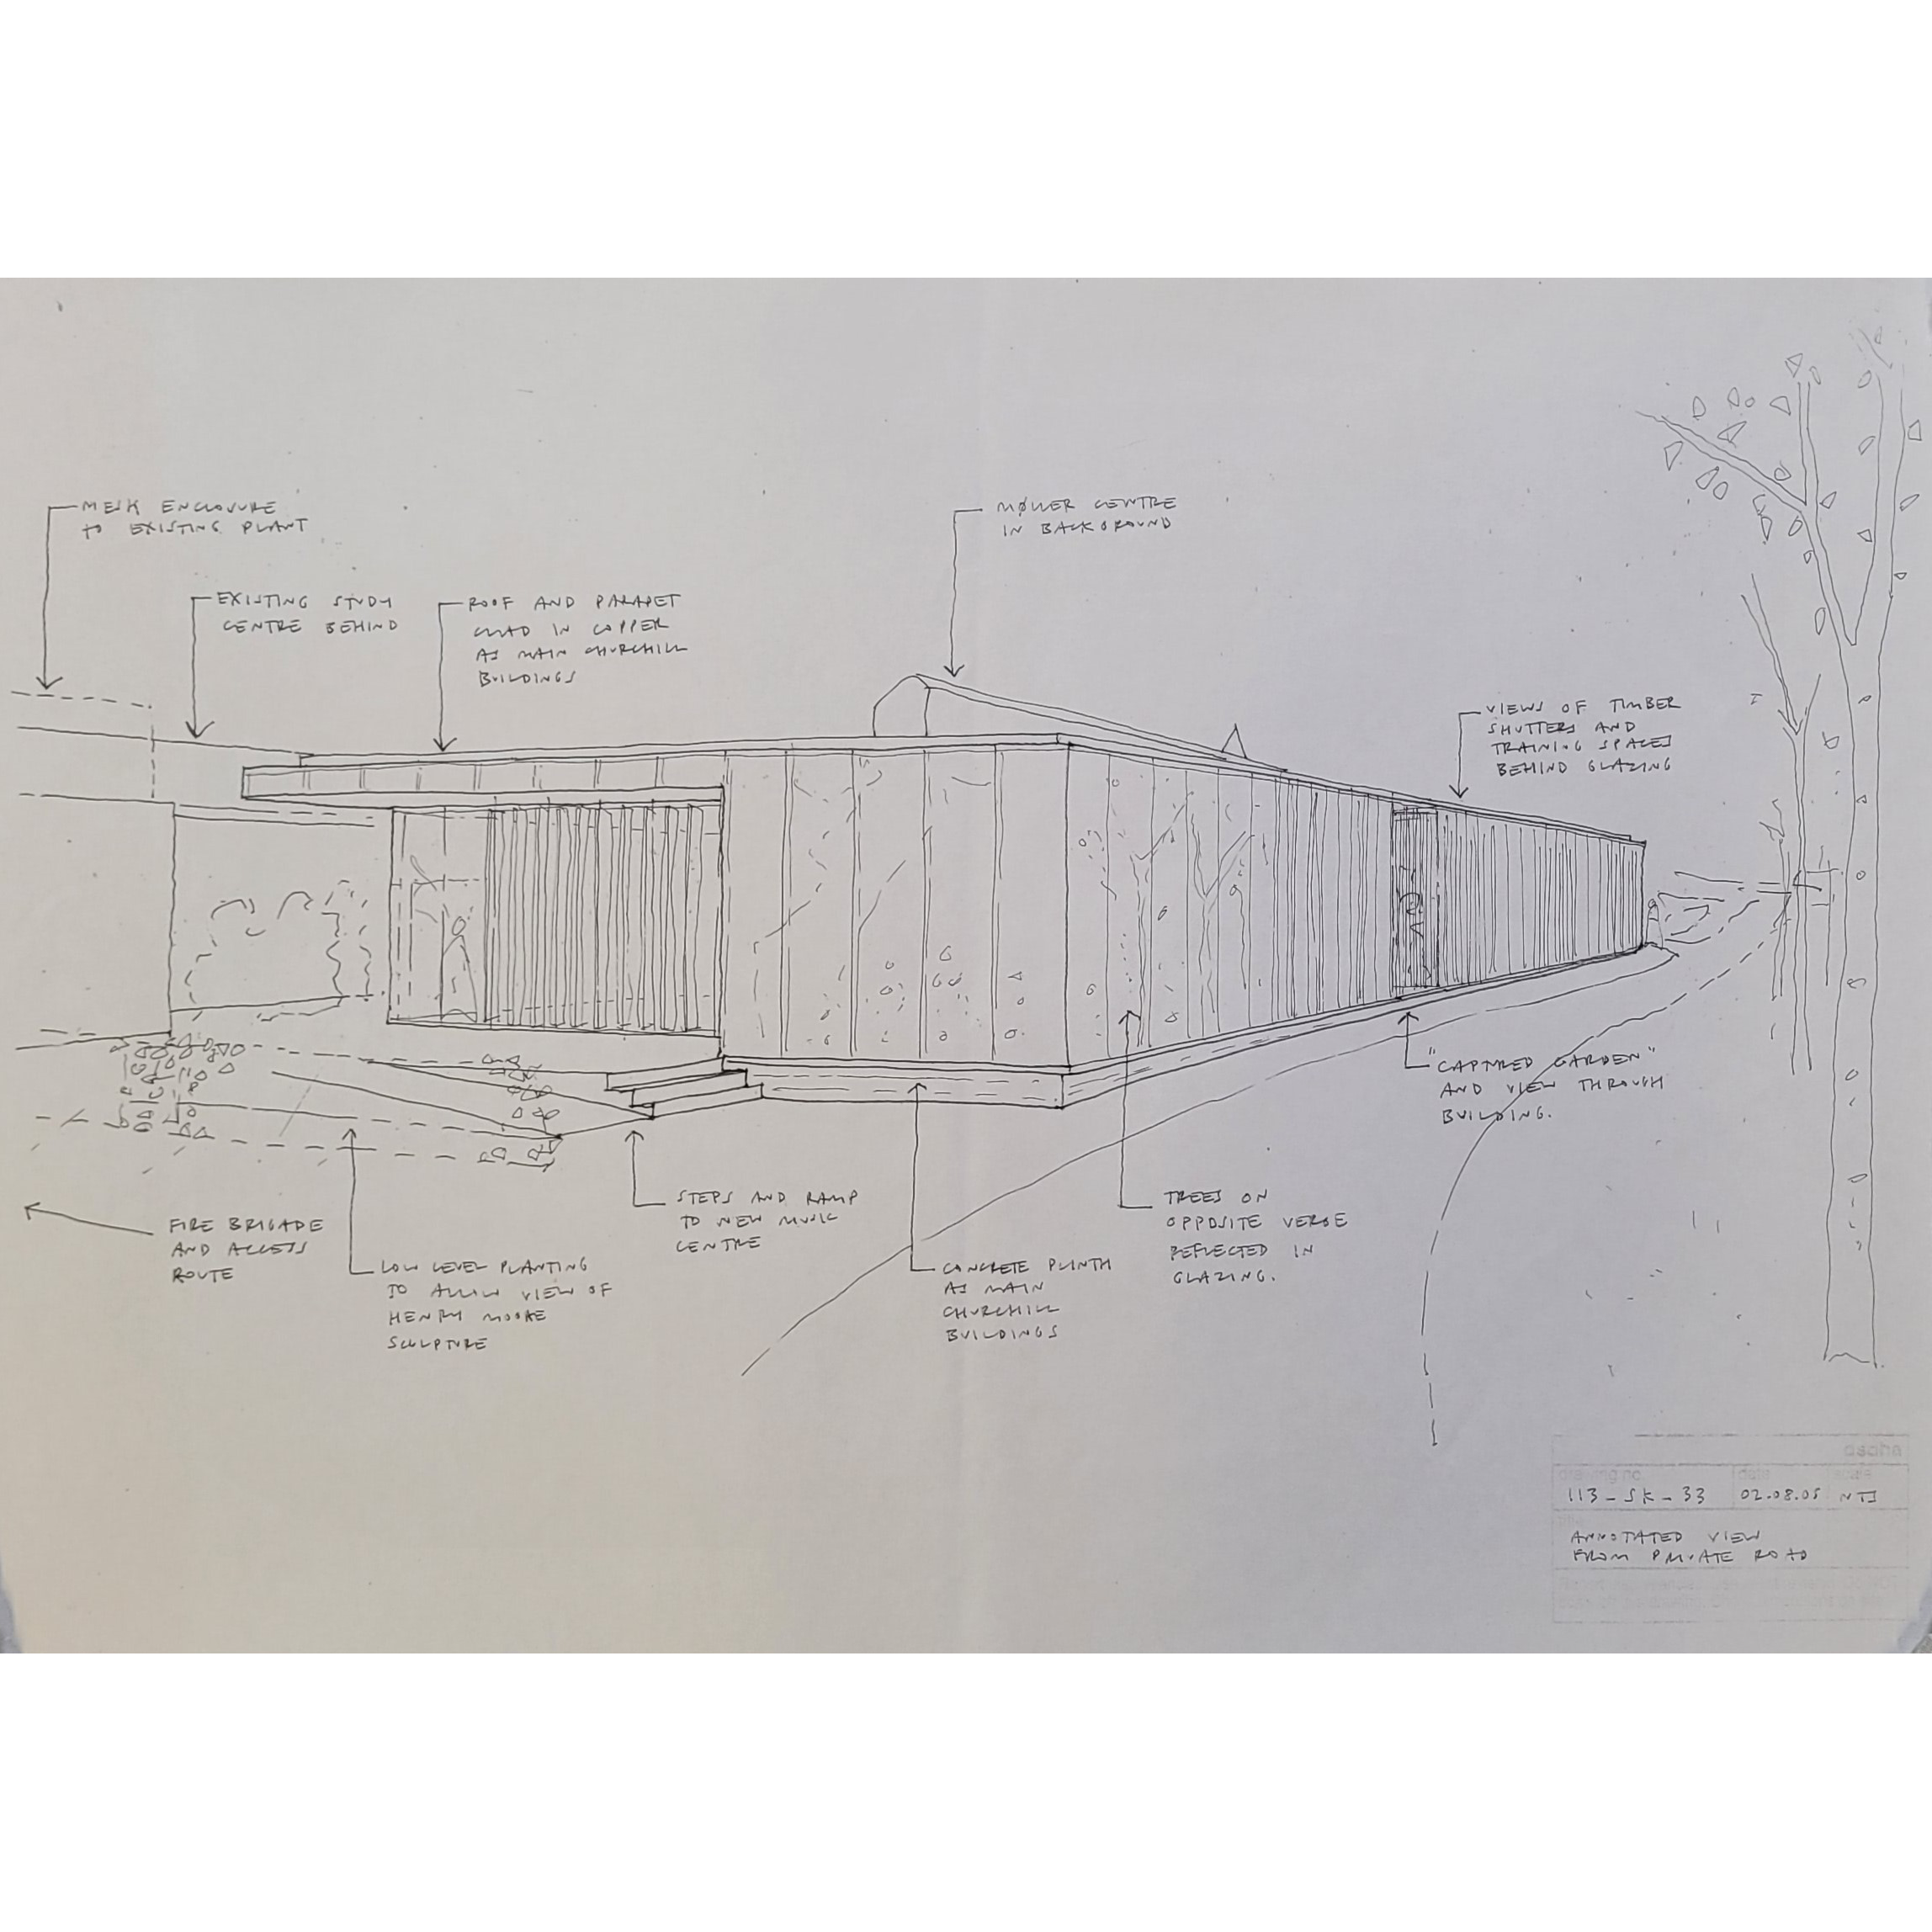 MESH ENCLOSURE
TO EXISTING PLANT
MØLLER CENTRE
IN BACKGROUND
EXISTING STUDY
CENTRE BEHIND
ROOF AND PARAPET
CLAD IN COPPER
AS MAIN CHURCHILL
BUILDINGS
VIEWS OF TIMBER
SHUTTERS AND
TRAINING SPACES
BEHIND GLAZING
"CAPTURED GARDEN"
AND VIEW THROUGH
BUILDING.
FIRE BRIGADE
AND ACCESS
ROUTE
LOW LEVEL PLANTING
TO ALLOW VIEW OF
HENRY MOORE
SCULPTURE
STEPS AND RAMP
TO NEW MUSIC
CENTRE
CONCRETE PLINTH
AS MAIN
CHURCHILL
BUILDINGS
TREES ON
OPPOSITE VERGE
REFLECTED IN
GLAZING.
dsdha
drawing no. date scale
113-SK-33 02.08.05 NTS
title
ANNOTATED VIEW
FROM PRIVATE ROAD